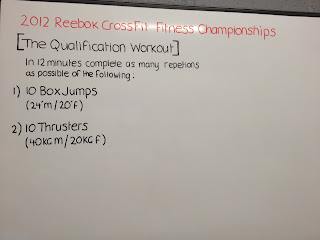 2012 Reebok CrossFit Fitness Championships
[The Qualification Workout]
In 12 minutes complete as many repetions
as possible of the following:
1) 10 Box Jumps
(24"m/20"f)
2) 10 Thrusters
(40KG m/20KG f)